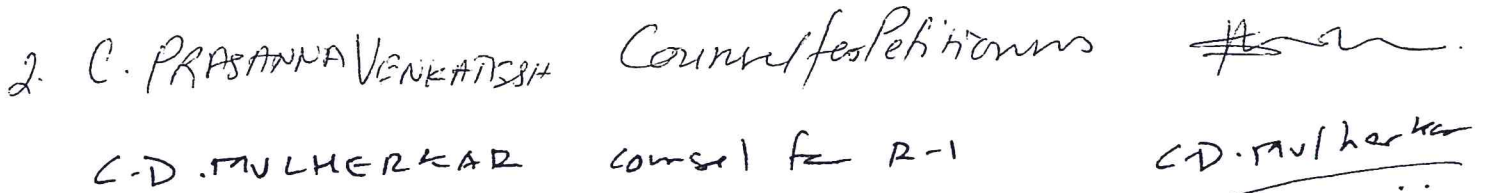 2. C. PRASANNA VENKATESH Counsel for Petitioners
C.D. MULHERKAR counsel for R-1 C.D. Mulherkar